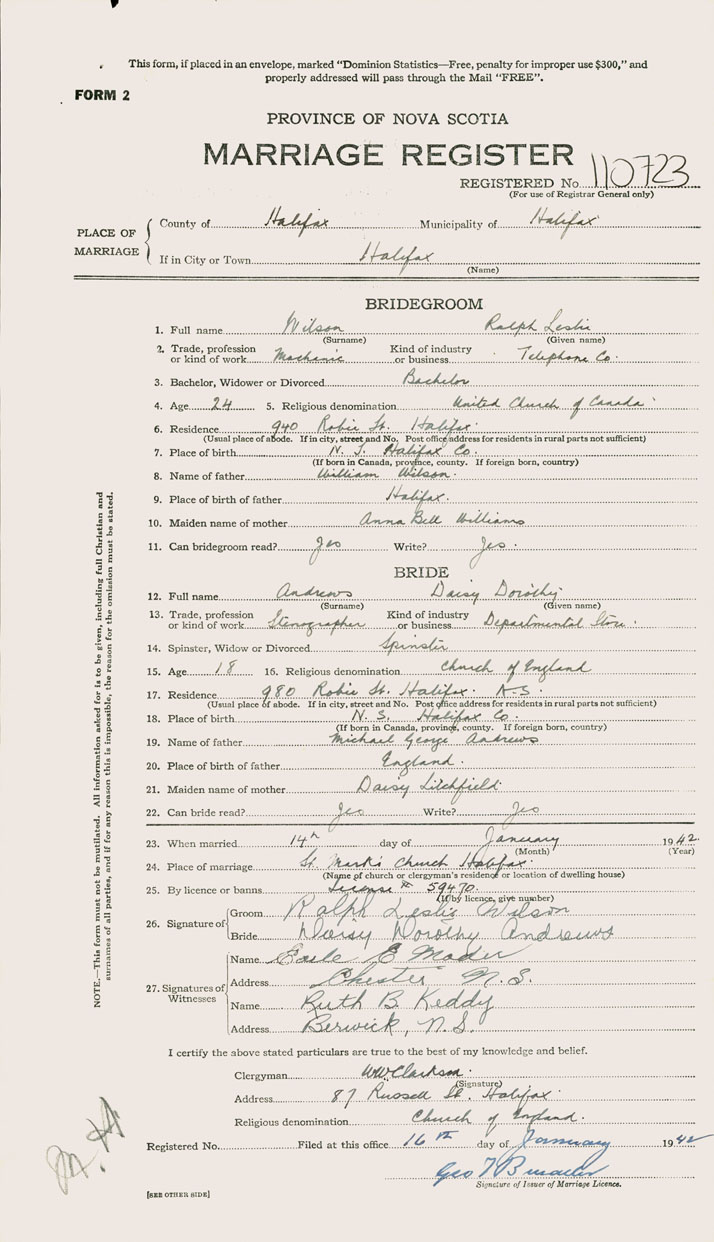 This form, if placed in an envelope, marked “Dominion Statistics—Free, penalty for improper use $300,” and
properly addressed will pass through the Mail “FREE”.
FORM 2
PROVINCE OF NOVA SCOTIA
MARRIAGE REGISTER
REGISTERED No. 110723
(For use of Registrar General only)
PLACE OF MARRIAGE
County of Halifax Municipality of Halifax
If in City or Town Halifax
(Name)
BRIDEGROOM
1. Full name Wilson Ralph Leslie
(Surname) (Given name)
2. Trade, profession or kind of work Mechanic Kind of industry or business Telephone Co.
3. Bachelor, Widower or Divorced Bachelor
4. Age 24 5. Religious denomination United Church of Canada
6. Residence 940 Robie St. Halifax
(Usual place of abode. If in city, street and No. Post office address for residents in rural parts not sufficient)
7. Place of birth N. S. Halifax Co.
(If born in Canada, province, county. If foreign born, country)
8. Name of father William Wilson
9. Place of birth of father Halifax.
10. Maiden name of mother Anna Bell Williams
11. Can bridegroom read? Yes Write? Yes.
BRIDE
12. Full name Andrews Daisy Dorothy
(Surname) (Given name)
13. Trade, profession or kind of work Stenographer Kind of industry or business Departmental Store.
14. Spinster, Widow or Divorced Spinster
15. Age 18 16. Religious denomination Church of England
17. Residence 980 Robie St. Halifax. N.S.
(Usual place of abode. If in city, street and No. Post office address for residents in rural parts not sufficient)
18. Place of birth N. S. Halifax Co.
(If born in Canada, province, county. If foreign born, country)
19. Name of father Michael George Andrews
20. Place of birth of father England.
21. Maiden name of mother Daisy Litchfield
22. Can bride read? Yes Write? Yes
23. When married 14th day of January 1942.
(Month) (Year)
24. Place of marriage St. Mark's Church Halifax.
(Name of church or clergyman's residence or location of dwelling house)
25. By licence or banns License No 59470.
(If by licence, give number)
26. Signature of
Groom Ralph Leslie Wilson
Bride Daisy Dorothy Andrews
27. Signatures of Witnesses
Name Earle E Mader
Address Chester N.S.
Name Ruth B. Keddy
Address Berwick, N.S.
I certify the above stated particulars are true to the best of my knowledge and belief.
Clergyman WW Clarkson.
(Signature)
Address 87 Russell St. Halifax.
Religious denomination Church of England.
Registered No. Filed at this office 16th day of January 1942
Geo
Signature of Issuer of Marriage Licence.
[SEE OTHER SIDE]
NOTE.—This form must not be mutilated. All information asked for is to be given, including full Christian and
surnames of all parties, and if for any reason this is impossible, the reason for the omission must be stated.